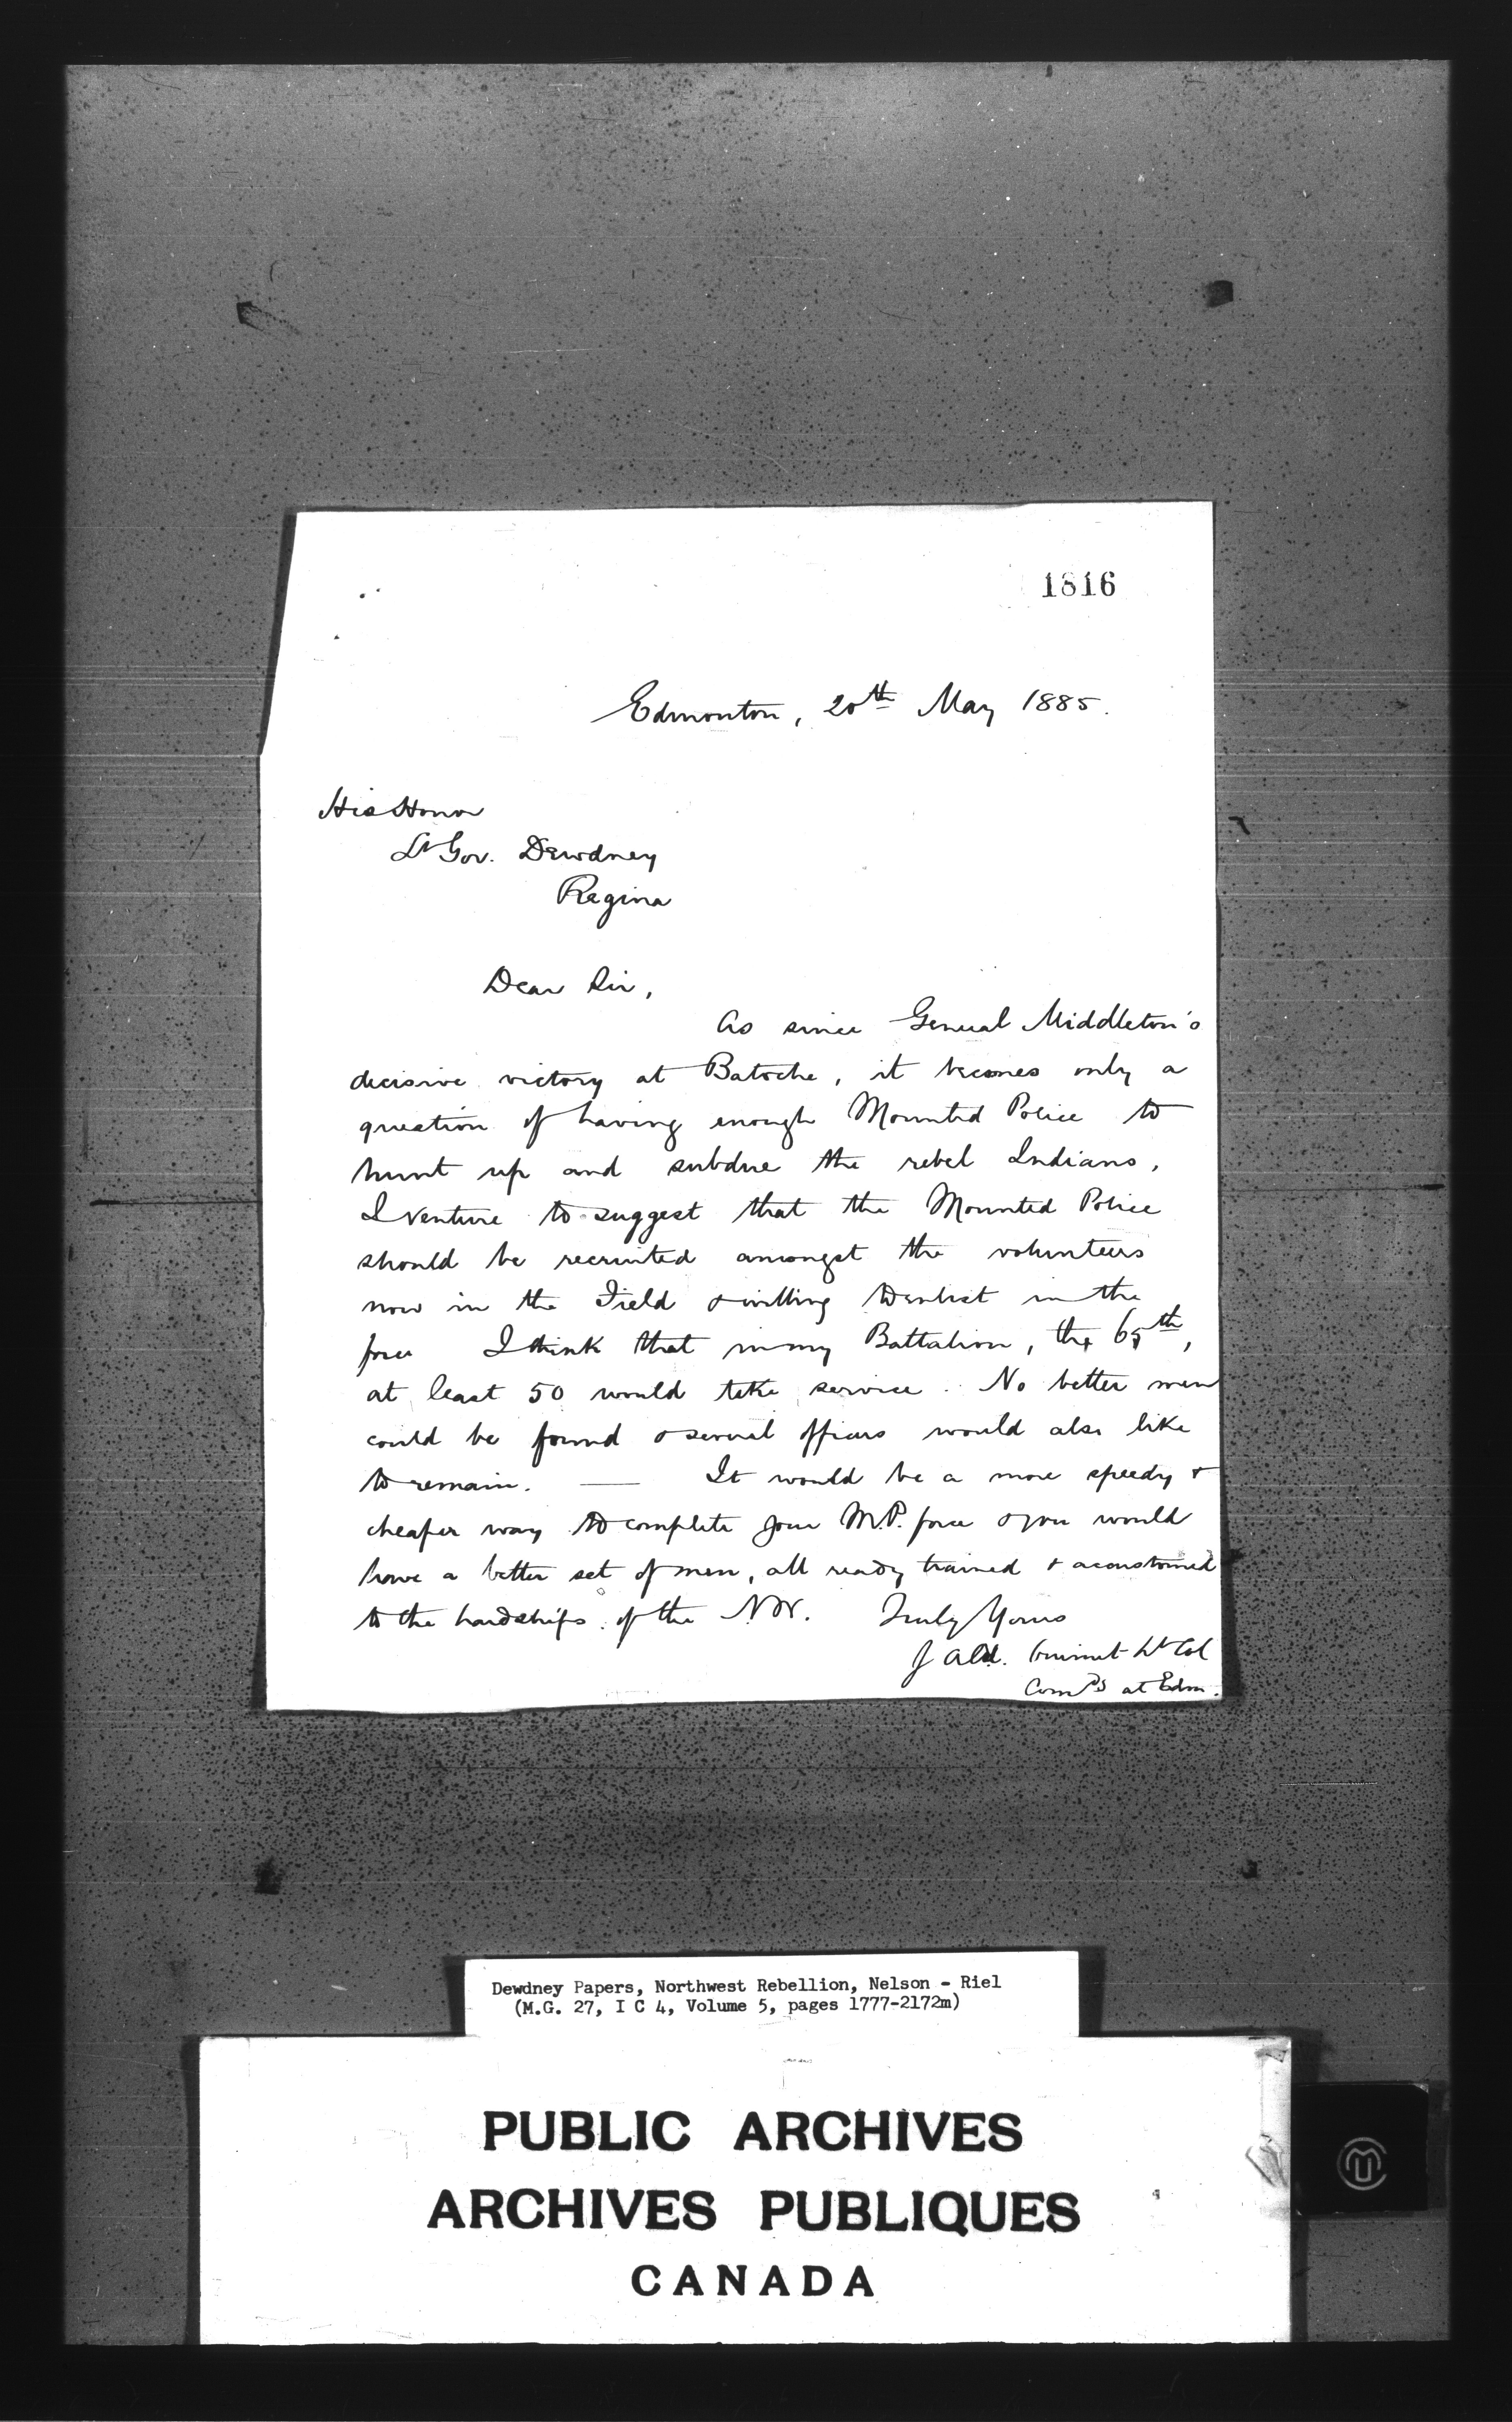 1816
Edmonton, 20th May 1885.
His Honor
Lt Gov. Dewdney
Regina
Dear Sir,
As since General Middleton's
decisive victory at Batoche, it becomes only a
question of having enough Mounted Police to
hunt up and subdue the rebel Indians,
I venture to suggest that the Mounted Police
should be recruited amongst the volunteers
now in the Field & willing to enlist in the
force I think that in my Battalion, the 65th,
at least 50 would take service. No better men
could be found & several officers would also like
to remain. — It would be a more speedy &
cheaper way to complete your M.P. force & you would
have a better set of men, all ready trained & accustomed
to the hardships of the N.W. Truly Yours
J Ald. Ouimet Lt Col
Comdg at Edm.
Dewdney Papers, Northwest Rebellion, Nelson - Riel
(M.G. 27, I C 4, Volume 5, pages 1777-2172m)
PUBLIC ARCHIVES
ARCHIVES PUBLIQUES
CANADA